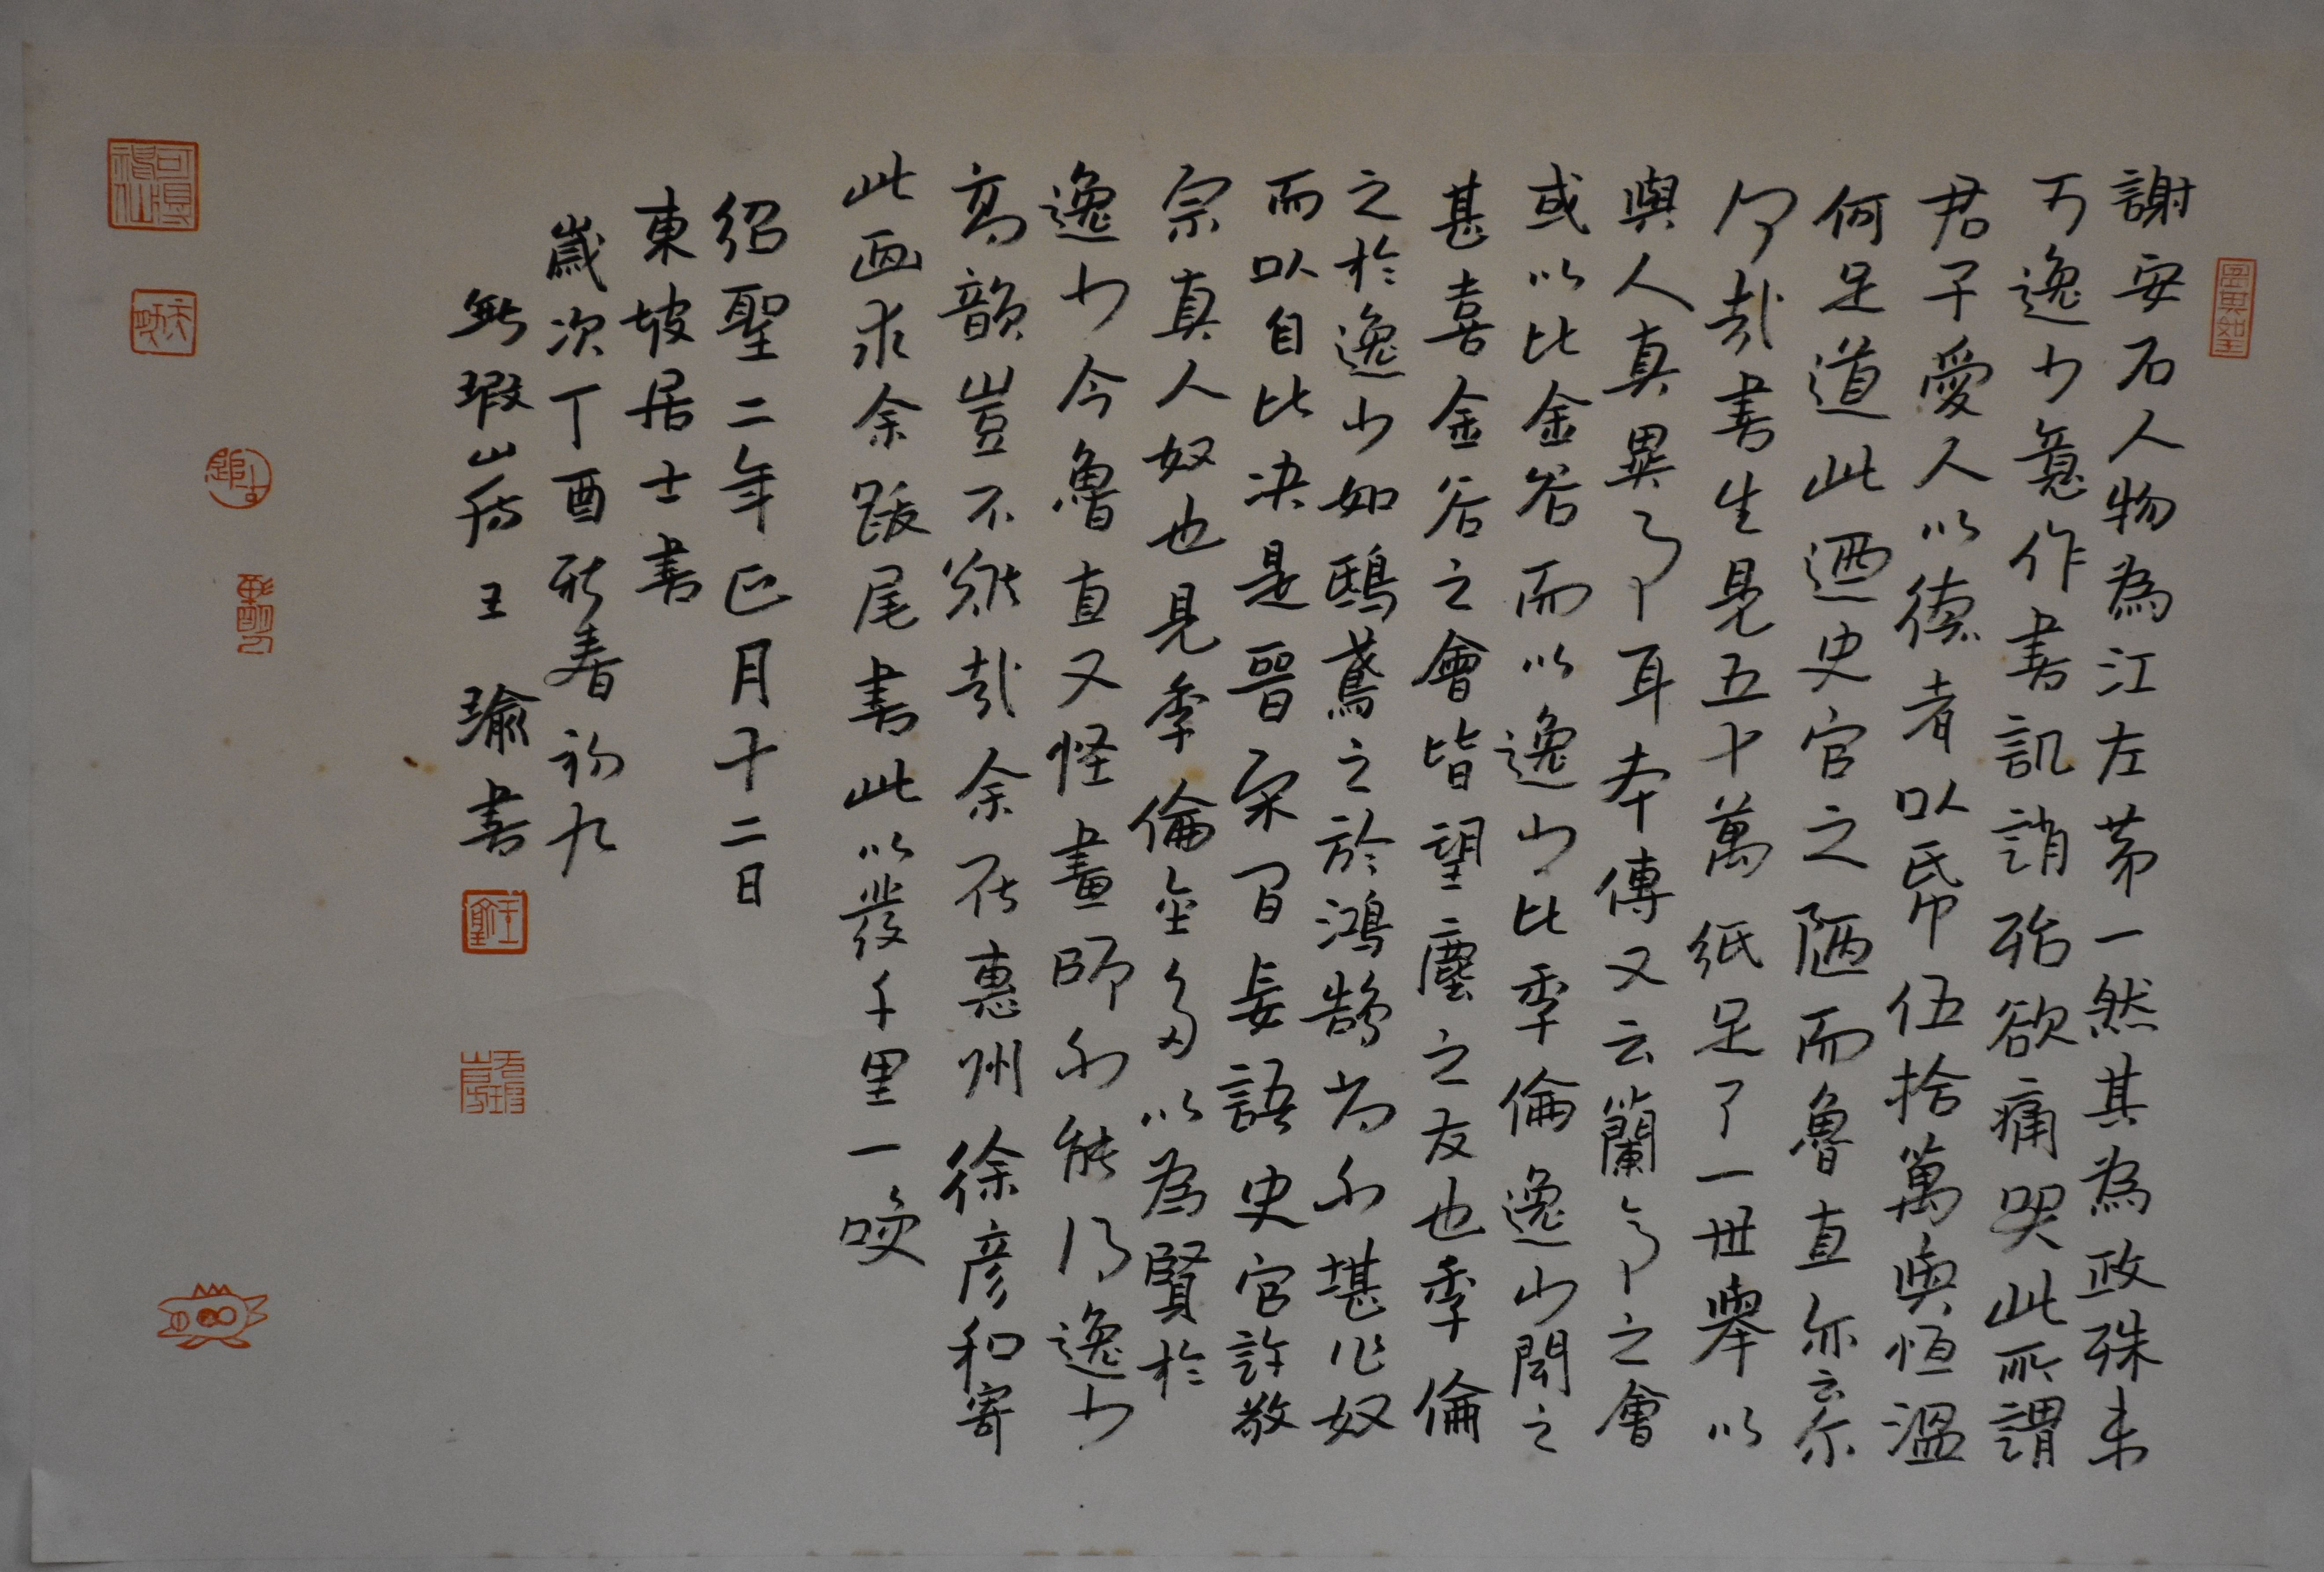 謝安石人物為江左第一然其為政殊未
可逸少意作書訊誚殆欲痛哭此所謂
君子愛人以德者以紙伍拾萬與恒溫
何足道此迺史官之陋而魯直亦云尒
何哉書生見五十萬紙足了一世舉以
與人真異事耳本傳又云蘭亭之會
或以比金谷而以逸少比季倫逸少聞之
甚喜金谷之會皆望塵之友也季倫
之於逸少如鴟鳶之於鴻鵠尚不堪作奴
而以自比决是晉宋間妄語史官許敬
宗真人奴也見季倫金多以為賢於
逸少今魯直又怪畫師不能得逸少
高韻豈不難哉余在惠州徐彥和寄
此画求余跋尾書此以發千里一咲
紹聖二年正月十二日
東坡居士書
歲次丁酉新春初九
無瑕山房王瑜書